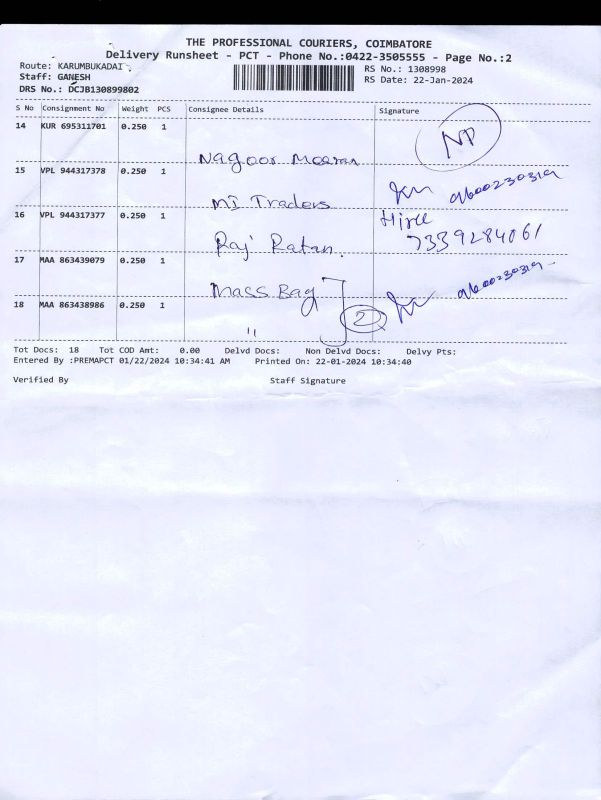 THE PROFESSIONAL COURIERS, COIMBATORE
Delivery Runsheet - PCT - Phone No.:0422-3505555 - Page No.:2
Route: KARUMBUKADAI
RS No.: 1308998
Staff: GANESH
RS Date: 22-Jan-2024
DRS No.: DCJB130899802
S No Consignment No Weight PCS Consignee Details Signature
14 KUR 695311701 0.250 1 Nagoor Meeran NP
15 VPL 944317378 0.250 1 MI Traders 9600230319
16 VPL 944317377 0.250 1 Raj Ratan. 7339284061
17 MAA 863439079 0.250 1 Mass Bag 9600230319
18 MAA 863438986 0.250 1 " 2
Tot Docs: 18 Tot COD Amt: 0.00 Delvd Docs: Non Delvd Docs: Delvy Pts:
Entered By :PREMAPCT 01/22/2024 10:34:41 AM Printed On: 22-01-2024 10:34:40
Verified By Staff Signature